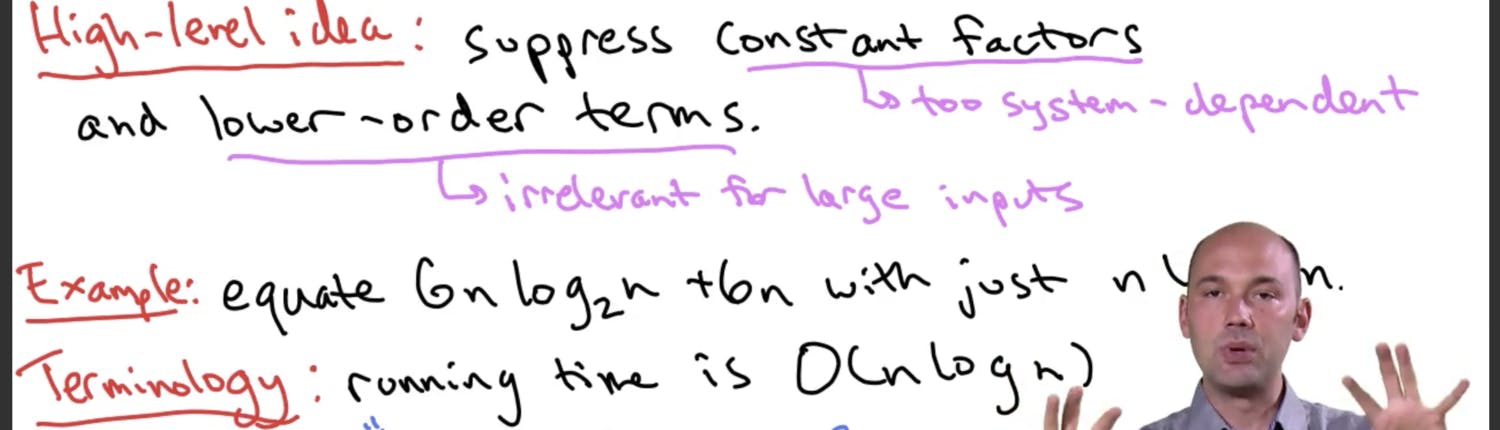 High-level idea: suppress constant factors
↳ too system-dependent
and lower-order terms.
↳ irrelevant for large inputs
Example: equate 6n log₂n + 6n with just n n.
Terminology: running time is O(n log n)